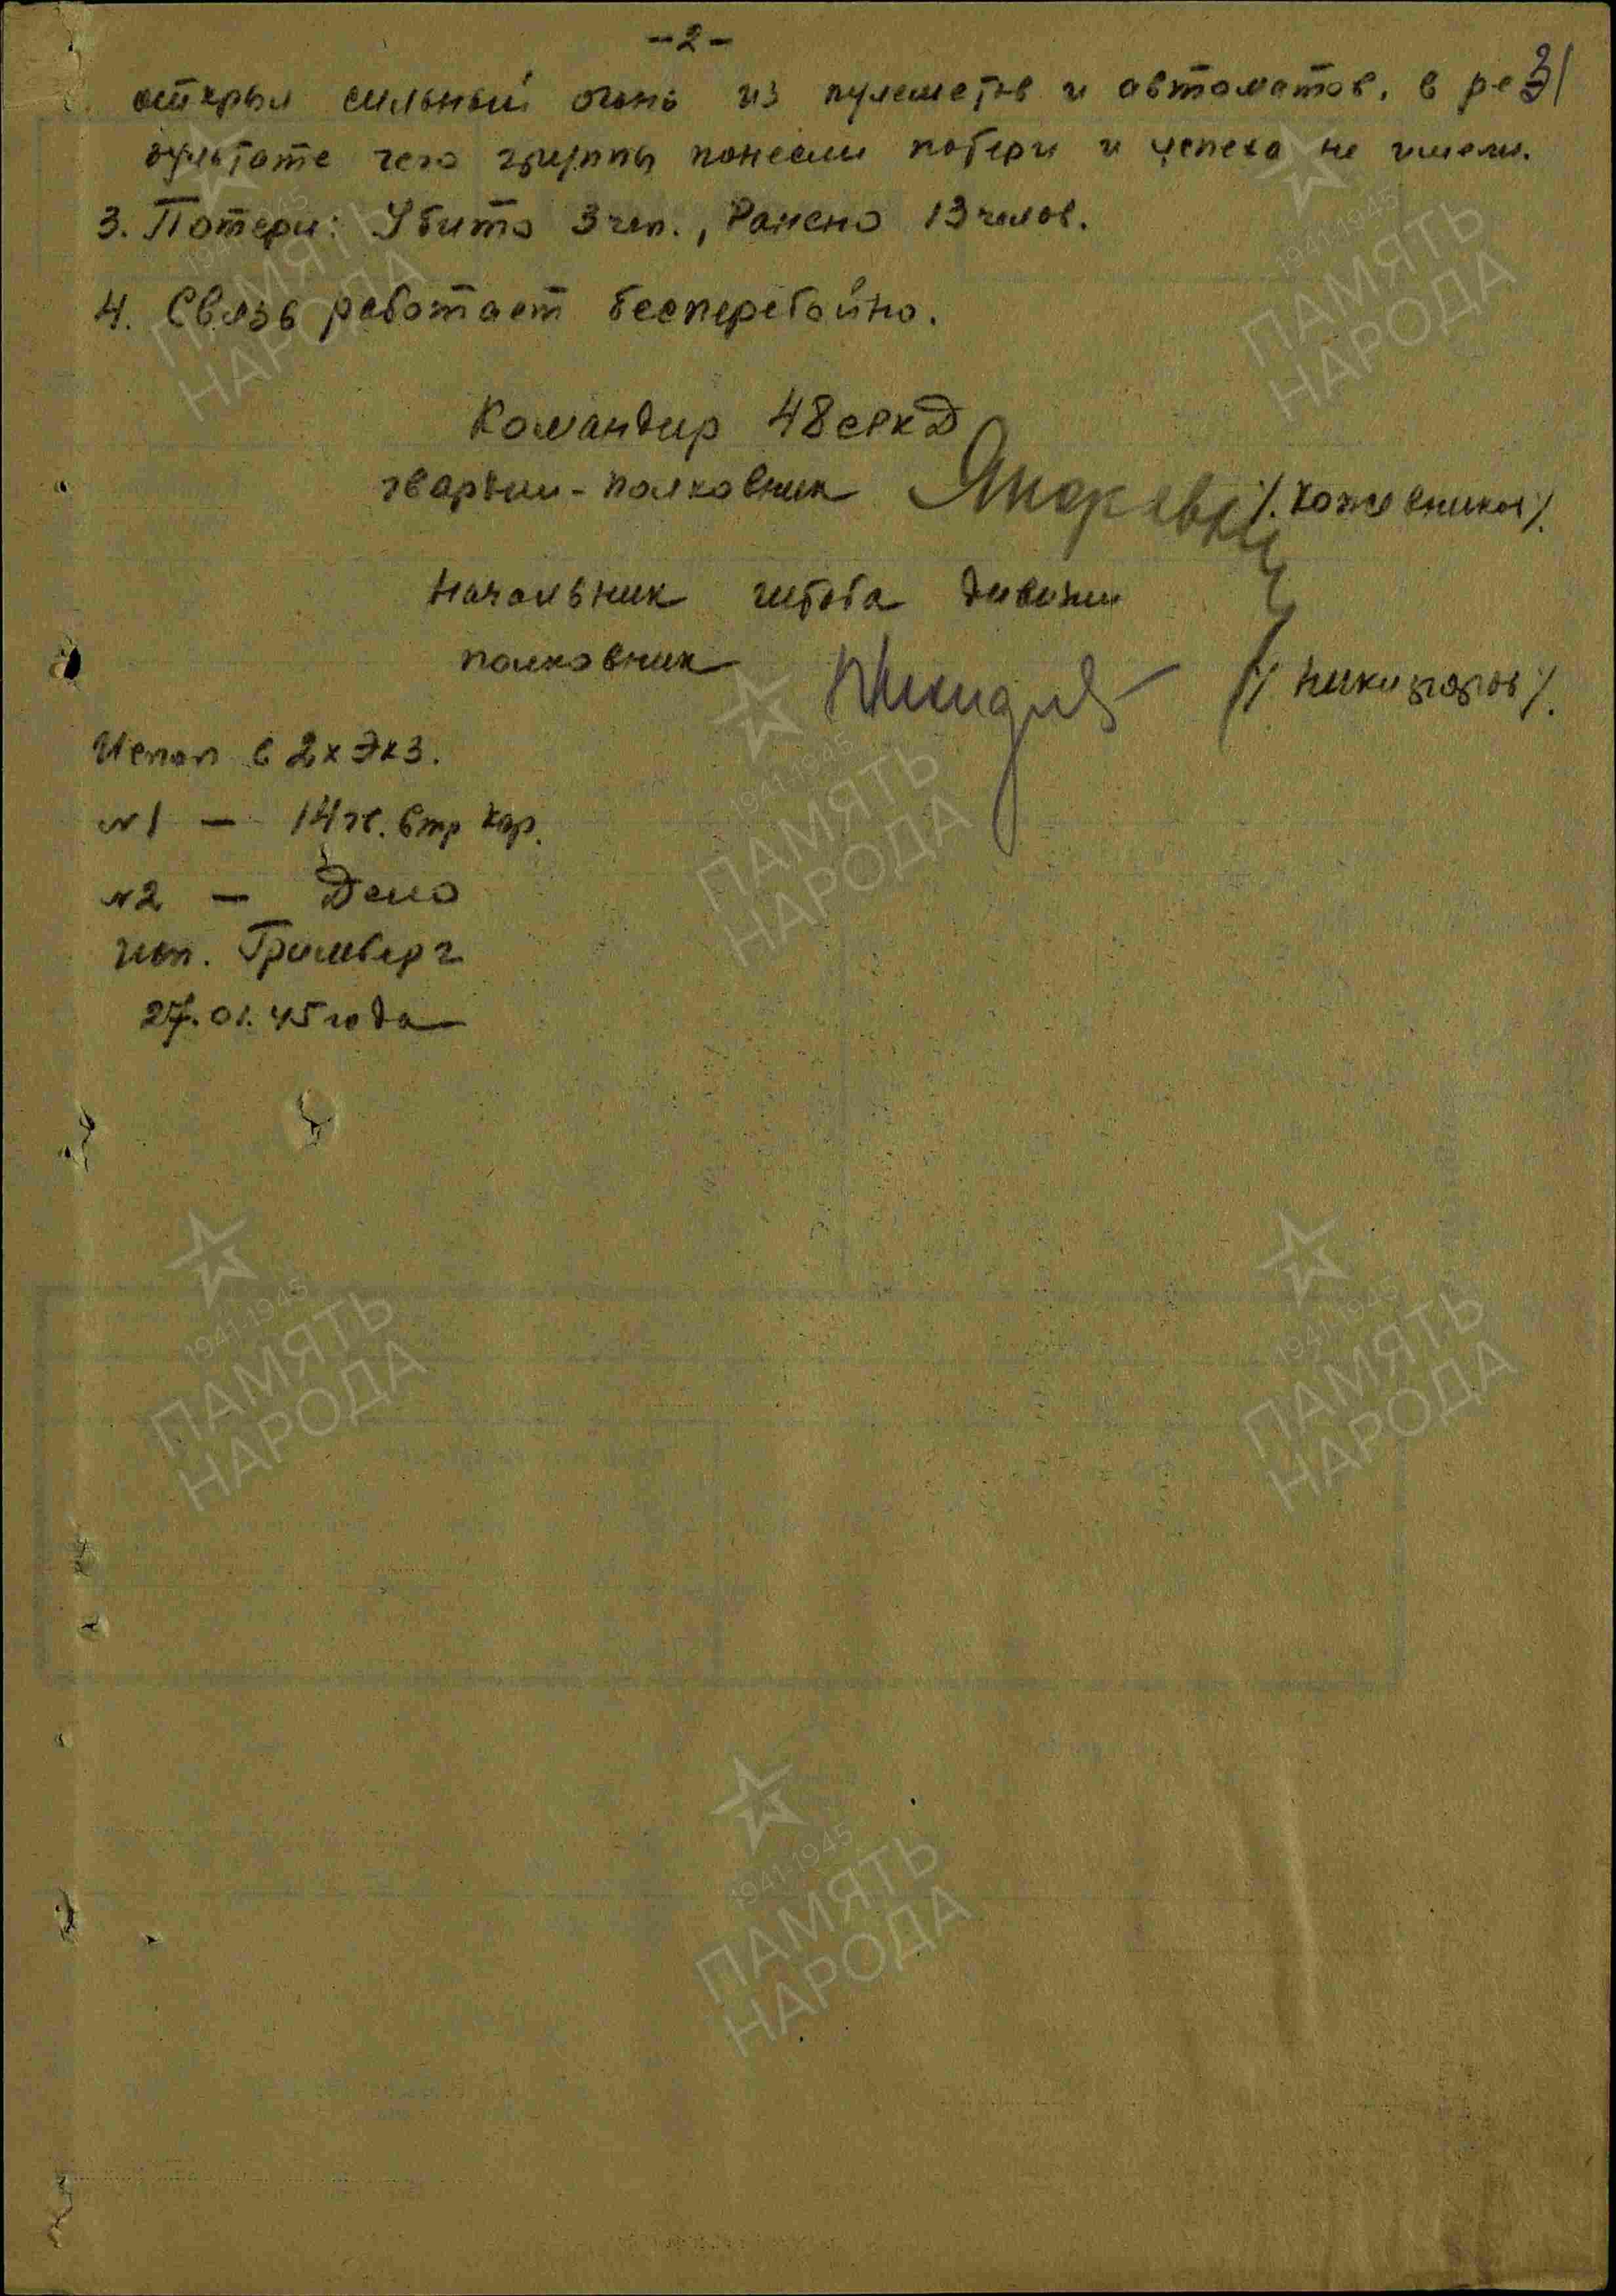 -2-
31
открыл сильный огонь из пулеметов и автоматов, в ре-
зультате чего группы понесли потери и успеха не имели.
3. Потери: Убито 3 чел., Ранено 13 челов.
4. Связь работает бесперебойно.
Командир 48
гвардии-полковник /. Кожевников/.
Начальник штаба дивизии
полковник /. Никифоров/.
Испол в 2х Экз.
№1 — 14 Стр Кор.
№2 — Дело
исп. Гримберг
27.01.45 года
1941-1945
ПАМЯТЬ
НАРОДА
1941-1945
ПАМЯТЬ
НАРОДА
1941-1945
ПАМЯТЬ
НАРОДА
1941-1945
ПАМЯТЬ
НАРОДА
1941-1945
ПАМЯТЬ
НАРОДА
1941-1945
ПАМЯТЬ
НАРОДА